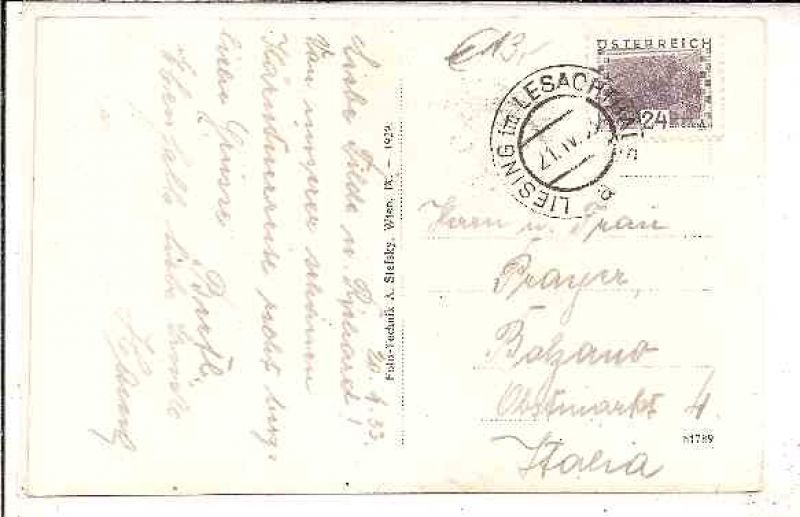 €13,-
ÖSTERREICH
24
LIESING im LESACHTALE
21.IV.
20.4.33.
Liebe Tilde u. Richard!
Von unserer schönen
Kärntnerreise recht herzl.
liebe Grüsse
Bertl.
Ebenfalls liebe Grüsse
Foto-Technik A. Stefsky, Wien, IX. – 1929
Herrn u. Frau
Prayer,
Bolzano
Obstmarkt 4.
Italia
51789